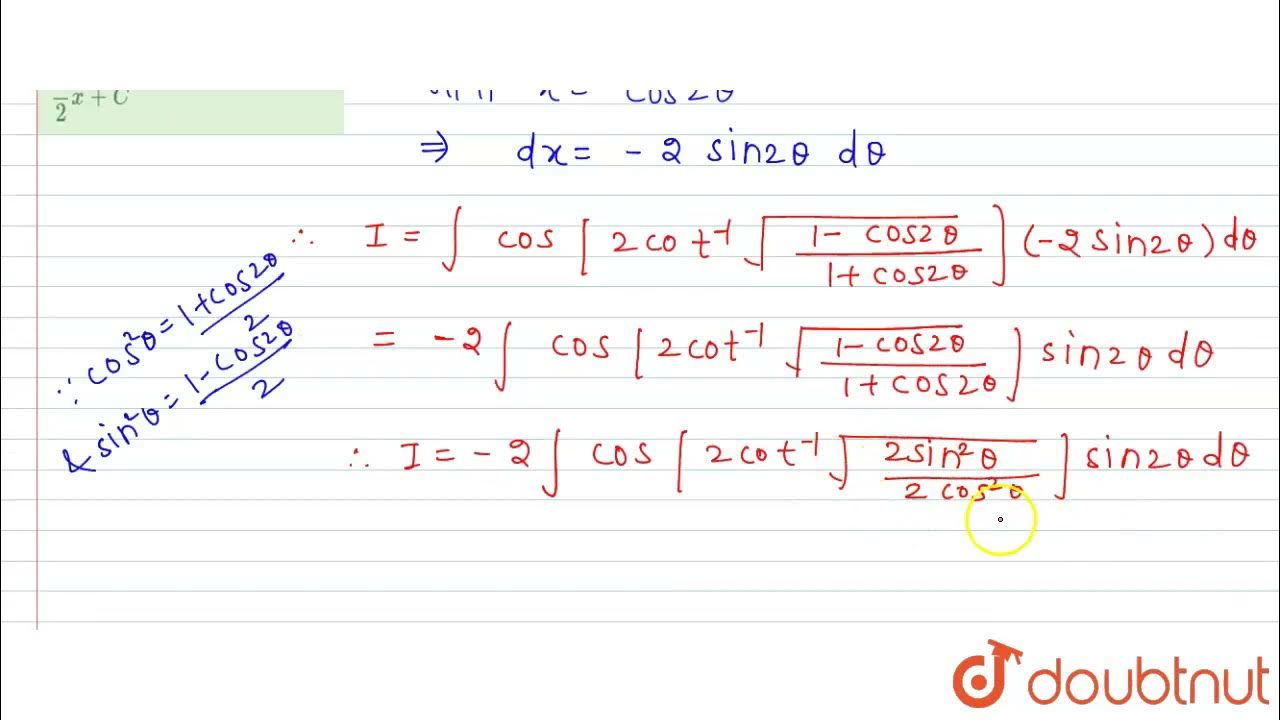 1/2 x + C
x = cos2θ
⇒ dx = - 2 sin2θ dθ
∴ I = ∫ cos [ 2cot⁻¹ √((1 - cos2θ)/(1 + cos2θ)) ] (-2sin2θ) dθ
∵ cos²θ = (1 + cos2θ)/2
& sin²θ = (1 - cos2θ)/2
= -2 ∫ cos [ 2cot⁻¹ √((1 - cos2θ)/(1 + cos2θ)) ] sin2θ dθ
∴ I = -2 ∫ cos [ 2cot⁻¹ √(2sin²θ/2cos²θ) ] sin2θ dθ
doubtnut